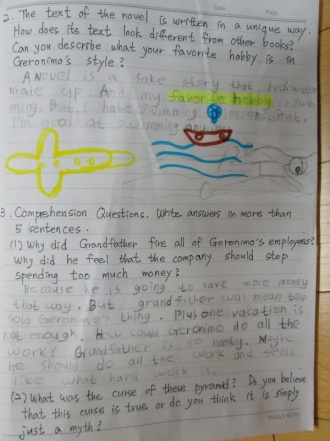 2. The text of the novel is written in a unique way.
How does its text look different from other books?
Can you describe what your favorite hobby is in
Geronimo's style?
A Novel is a fake story that
made up. And my favorite hobby is swim
ming. But, I hate swimming lessons. But,
I'm good at swimming
3. Comprehension Questions. Write answers in more than
5 sentences.
(1) Why did Grandfather fire all of Geronimo's employees?
Why did he feel that the company should stop
spending too much money?
Because he is going to save more money
that way. But grandfather was mean
sold Geronimo's thing. Plus one vacation is
not enough. How could Geronimo do all the
work? Grandfather is so nasty. Maybe
he should do all the work and feels
like what hard work is.
(2) What was the curse of these pyramid? Do you believe
that this curse is true or do you think it is simply
just a myth?